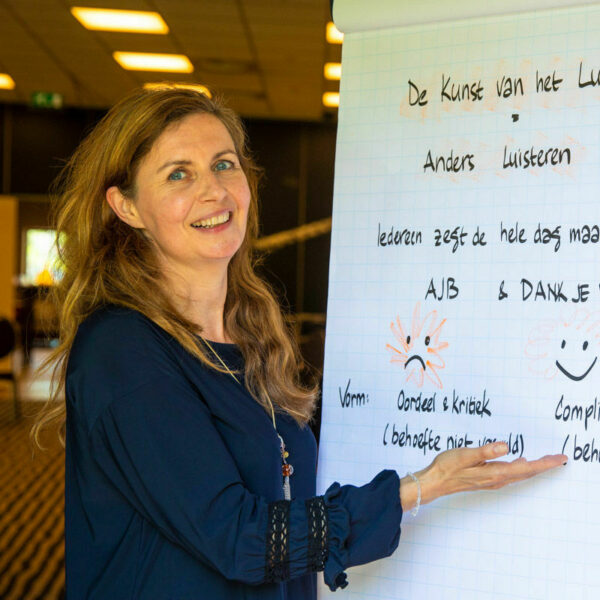 De Kunst van het Lu
Anders Luisteren
Iedereen zegt de hele dag maa
AJB & DANK JE
Vorm: Oordeel & kritiek Compli
(behoefte niet (beh